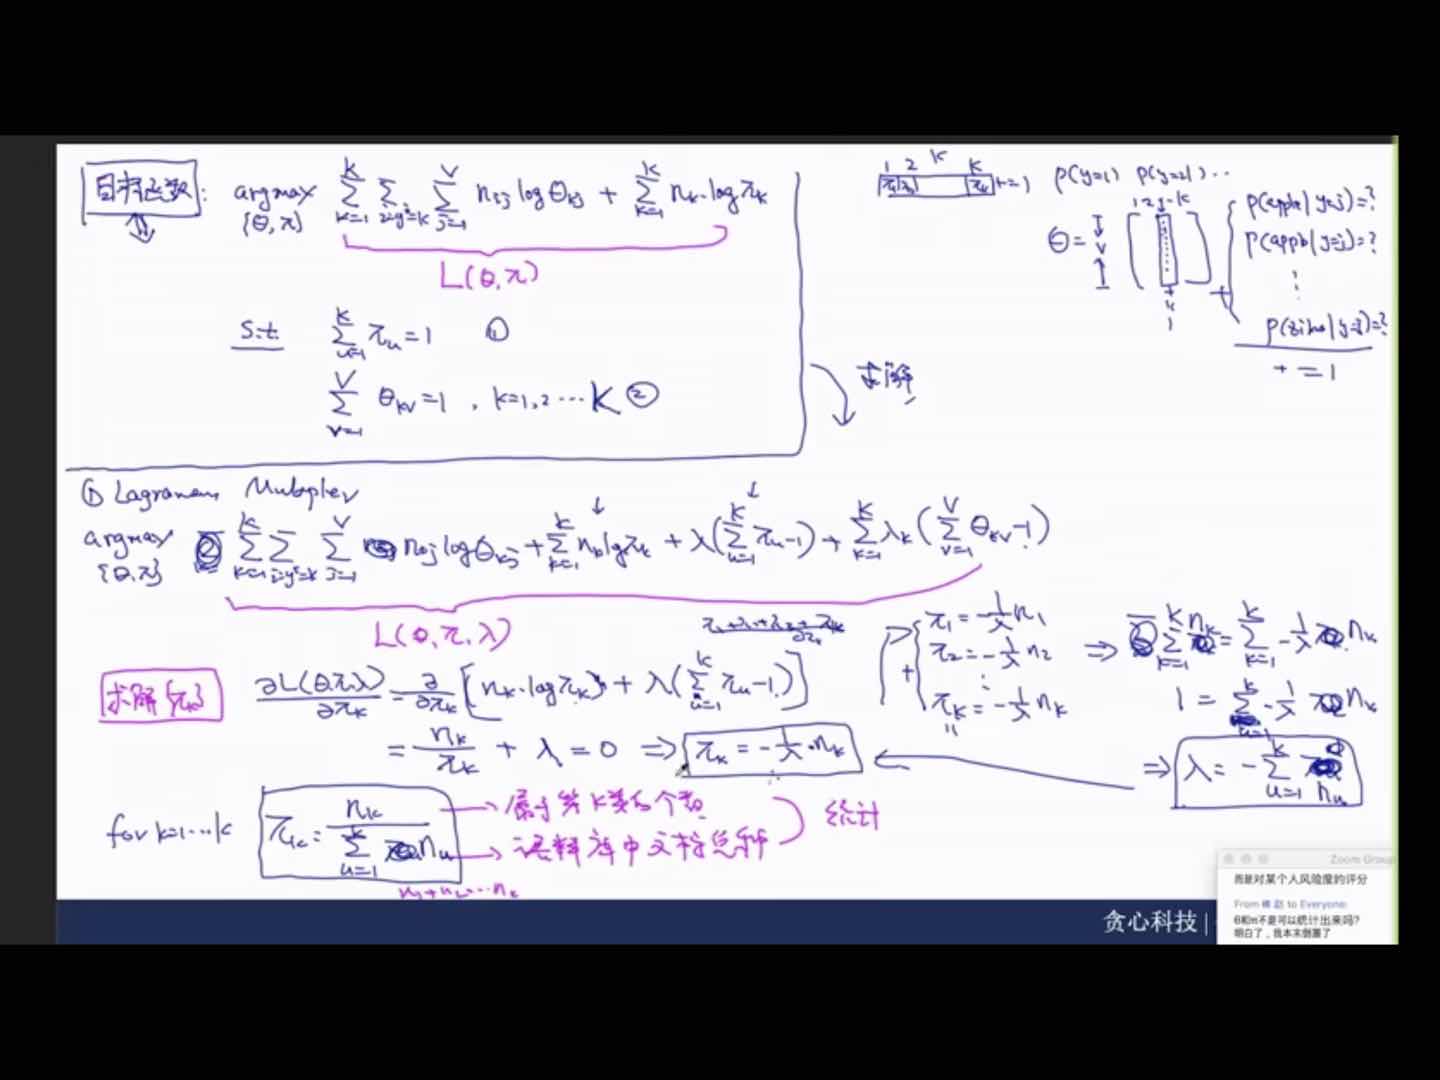 目标函数: argmax {θ,π} ∑_{k=1}^{K} ∑_{i:y^i=k} ∑_{j=1}^{V} n_{ij} log θ_{kj} + ∑_{k=1}^{K} n_k·log π_k
L(θ,π)
s.t. ∑_{u=1}^{K} π_u = 1 ①
∑_{v=1}^{V} θ_{kv} = 1, k=1,2···K ②
1 2 k K
π_1 π_2 π_k + = 1
p(y=1) p(y=2)···
1 2 j - K
θ = V
+ 1
p(apple|y=j)=?
p(appb|y=j)=?
⋮
+ = 1
求解
① Lagrange Multiplier
argmax {θ,π} ∑_{k=1}^{K} ∑_{i:y^i=k} ∑_{j=1}^{V} n_{ij} log θ_{kj} + ∑_{k=1}^{K} n_k log π_k + λ(∑_{u=1}^{K} π_u - 1) + ∑_{k=1}^{K} λ_k (∑_{v=1}^{V} θ_{kv} - 1)
L(θ,π,λ)
求解{π_k}
∂L(θ,π,λ)/∂π_k = ∂/∂π_k [n_k·log π_k + λ(∑_{u=1}^{K} π_u - 1)]
= n_k/π_k + λ = 0 ⇒ π_k = -1/λ·n_k
π_1 = -1/λ n_1
π_2 = -1/λ n_2
⋮
π_K = -1/λ n_K
⇒ ∑_{k=1}^{K} π_k = ∑_{k=1}^{K} -1/λ n_k
1 = ∑_{u=1}^{K} -1/λ n_k
⇒ λ = -∑_{u=1}^{K} n_u
for k=1...K π_k = n_k / ∑_{u=1}^{K} n_u
→ 属于第K类的个数
→ 语料库中文档总和
统计
n_1+n_2...n_k
Zoom Group
而是对某个人风险度的评分
to Everyone:
θ和π不是可以统计出来吗?
明白了，我本末倒置了
贪心科技 |